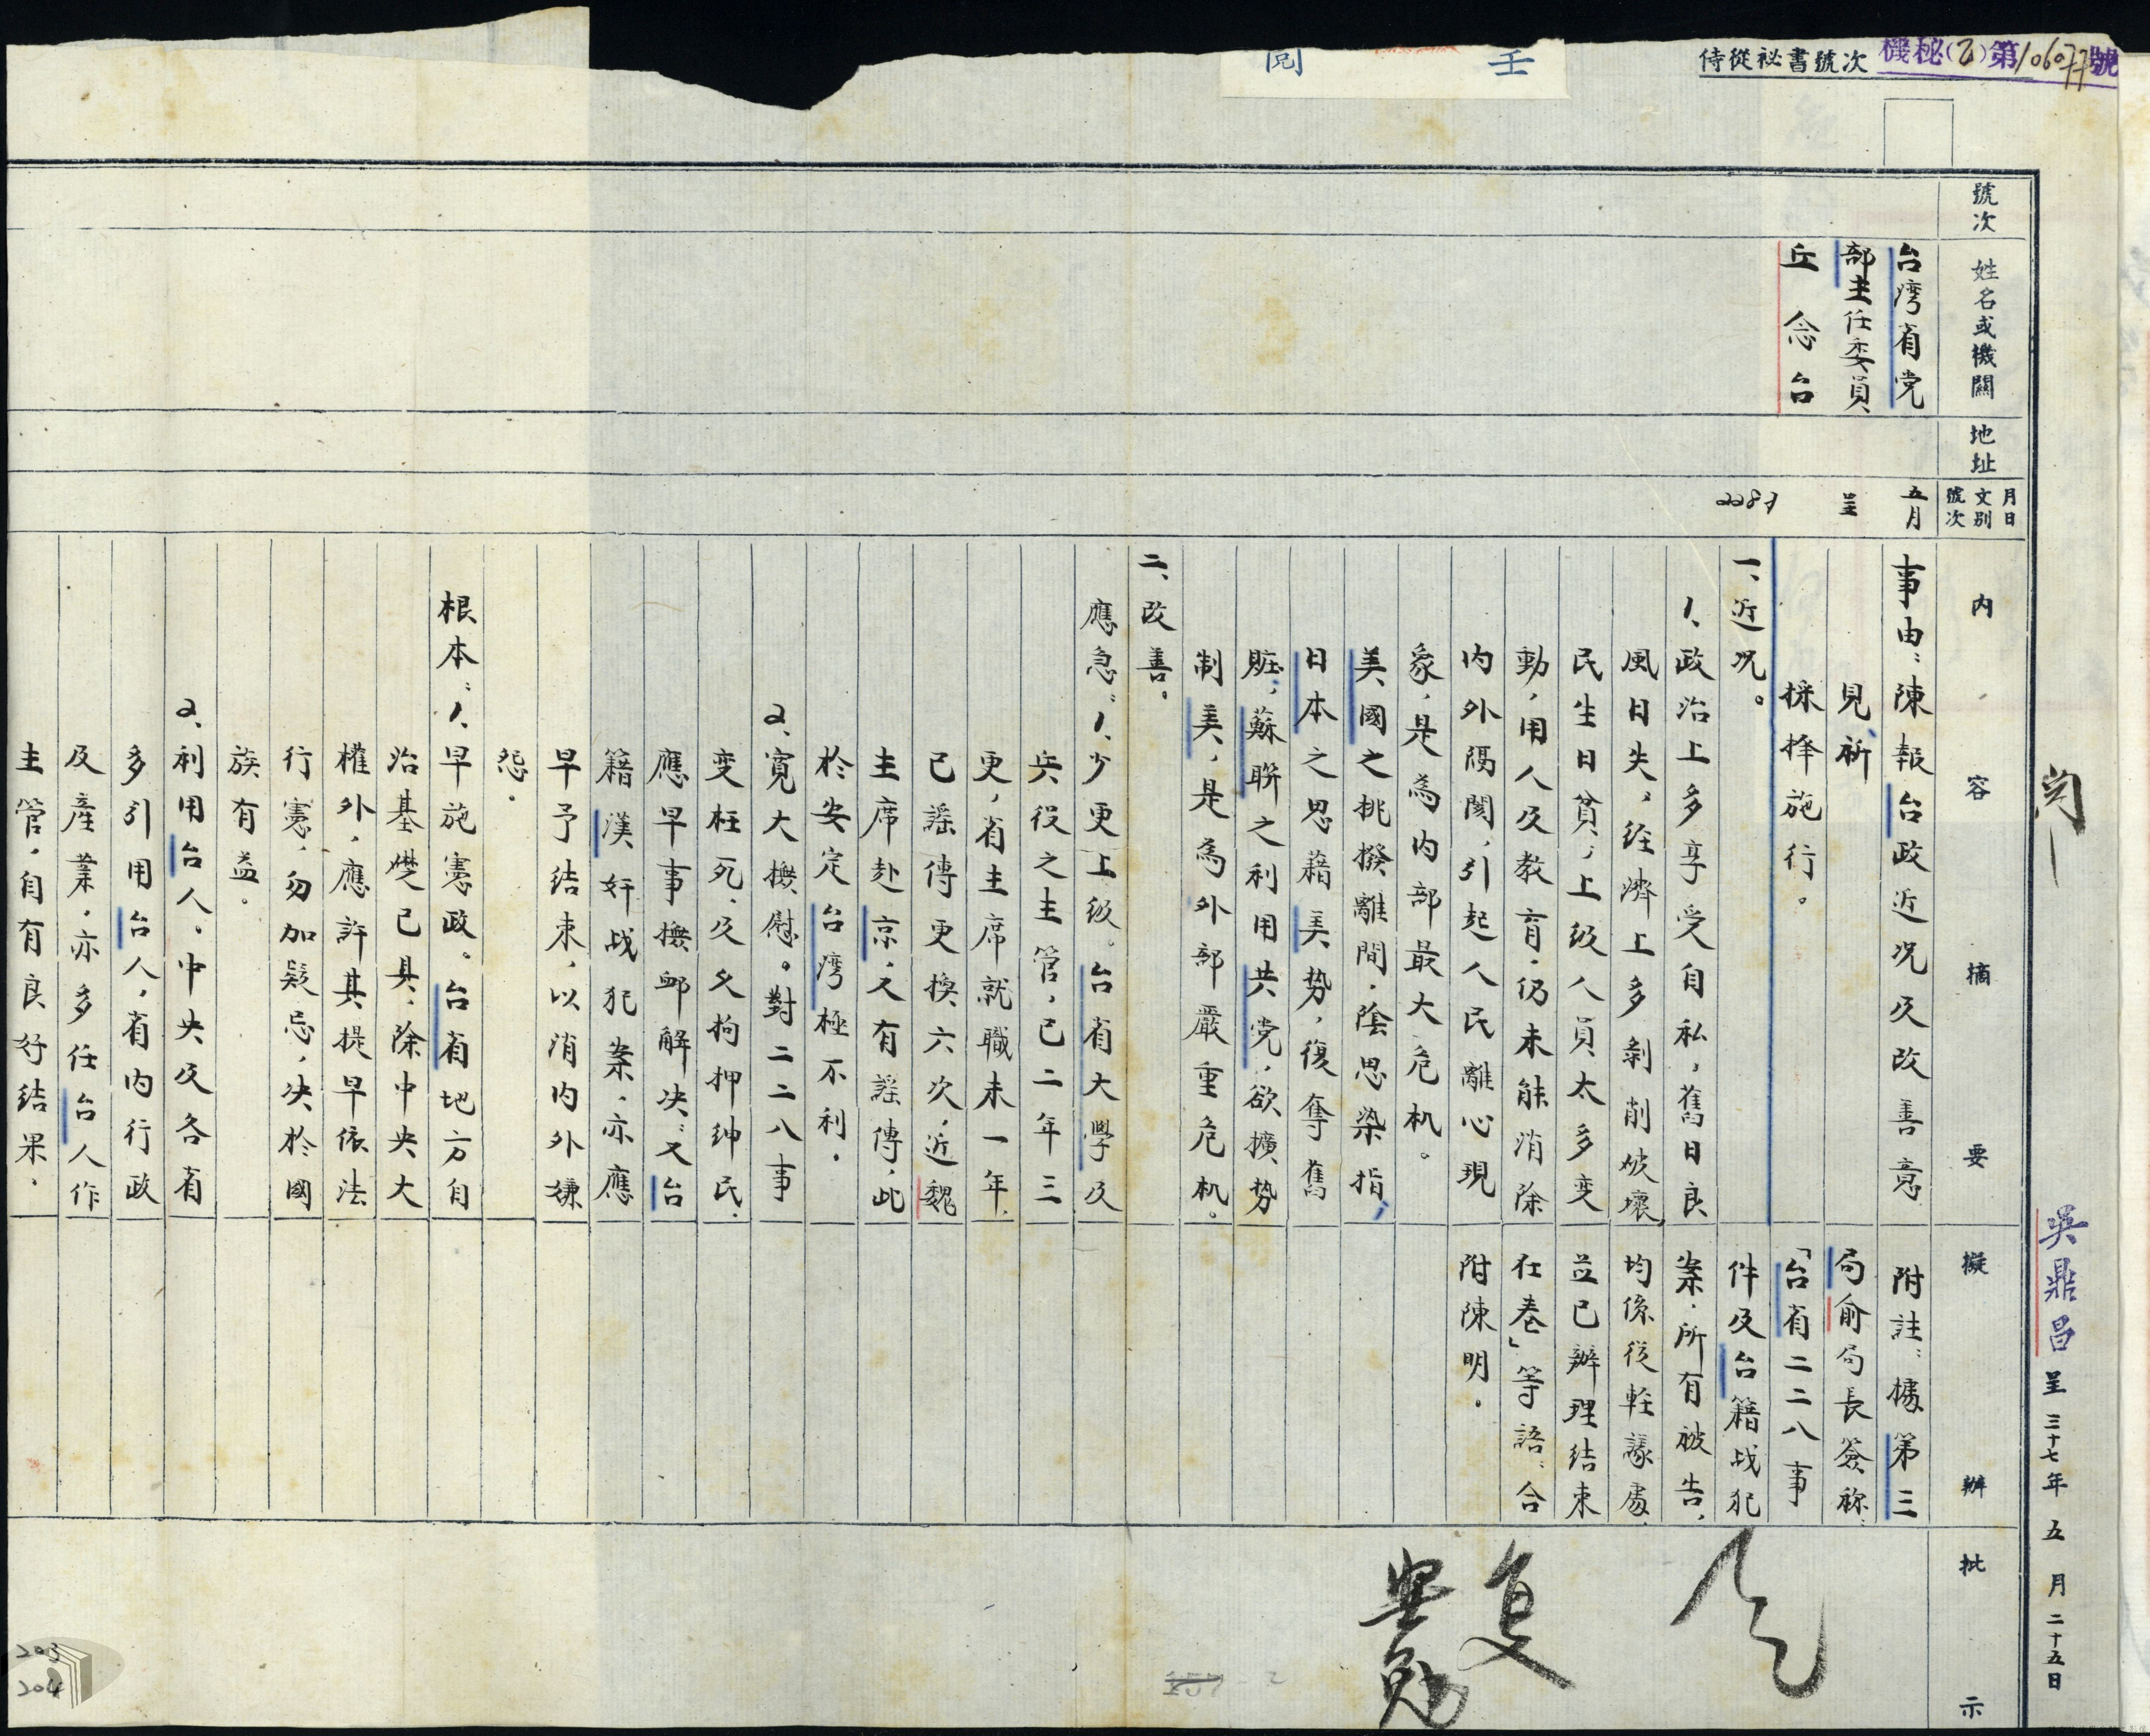 侍從祕書號次
機秘(乙)第10677號
閱
壬
吳鼎昌 呈 三十七年五月二十五日
號次
姓名或機關
地址
月日
文別
號次
內容摘要
擬辦
批示
台灣省党
部主任委員
丘念台
五月
呈
事由：陳報台政近況及改善意
見、祈
採擇施行。
一、近況。
1、政治上多享受自私，舊日良
風日失，經濟上多剝削破壞，
民生日貧，上級人員太多变
動，用人及教育，仍未能消除
內外隔閡，引起人民離心現
象，是為內部最大危机。
美國之挑撥離間，陰思染指，
日本之思藉美势，復奪舊
賍，蘇聯之利用共党，欲擴势
制美，是為外部嚴重危机。
二、改善。
應急：1、少更上級。台省大學及
兵役之主管，已二年三
更，省主席就職未一年，
已謡傳更換六次，近魏
主席赴京，又有謡傳，此
於安定台灣極不利。
2、寬大撫慰。對二二八事
变枉死，及久拘押紳民，
應早事撫卹解决，又台
籍漢奸战犯案，亦應
早予結束，以消內外嫌
怨。
根本：1、早施憲政。台省地方自
治基礎已具，除中央大
權外，應許其提早依法
行憲，勿加疑忌，决於國
族有益。
2、利用台人。中央及各省
多引用台人，省內行政
及產業，亦多任台人作
主管，自有良好結果。
附註：據第三
局俞局長簽称，
「台省二二八事
件及台籍战犯
案，所有被告，
均係從輕議處，
並已辦理結束
在卷」等語，合
附陳明。
復
203
204